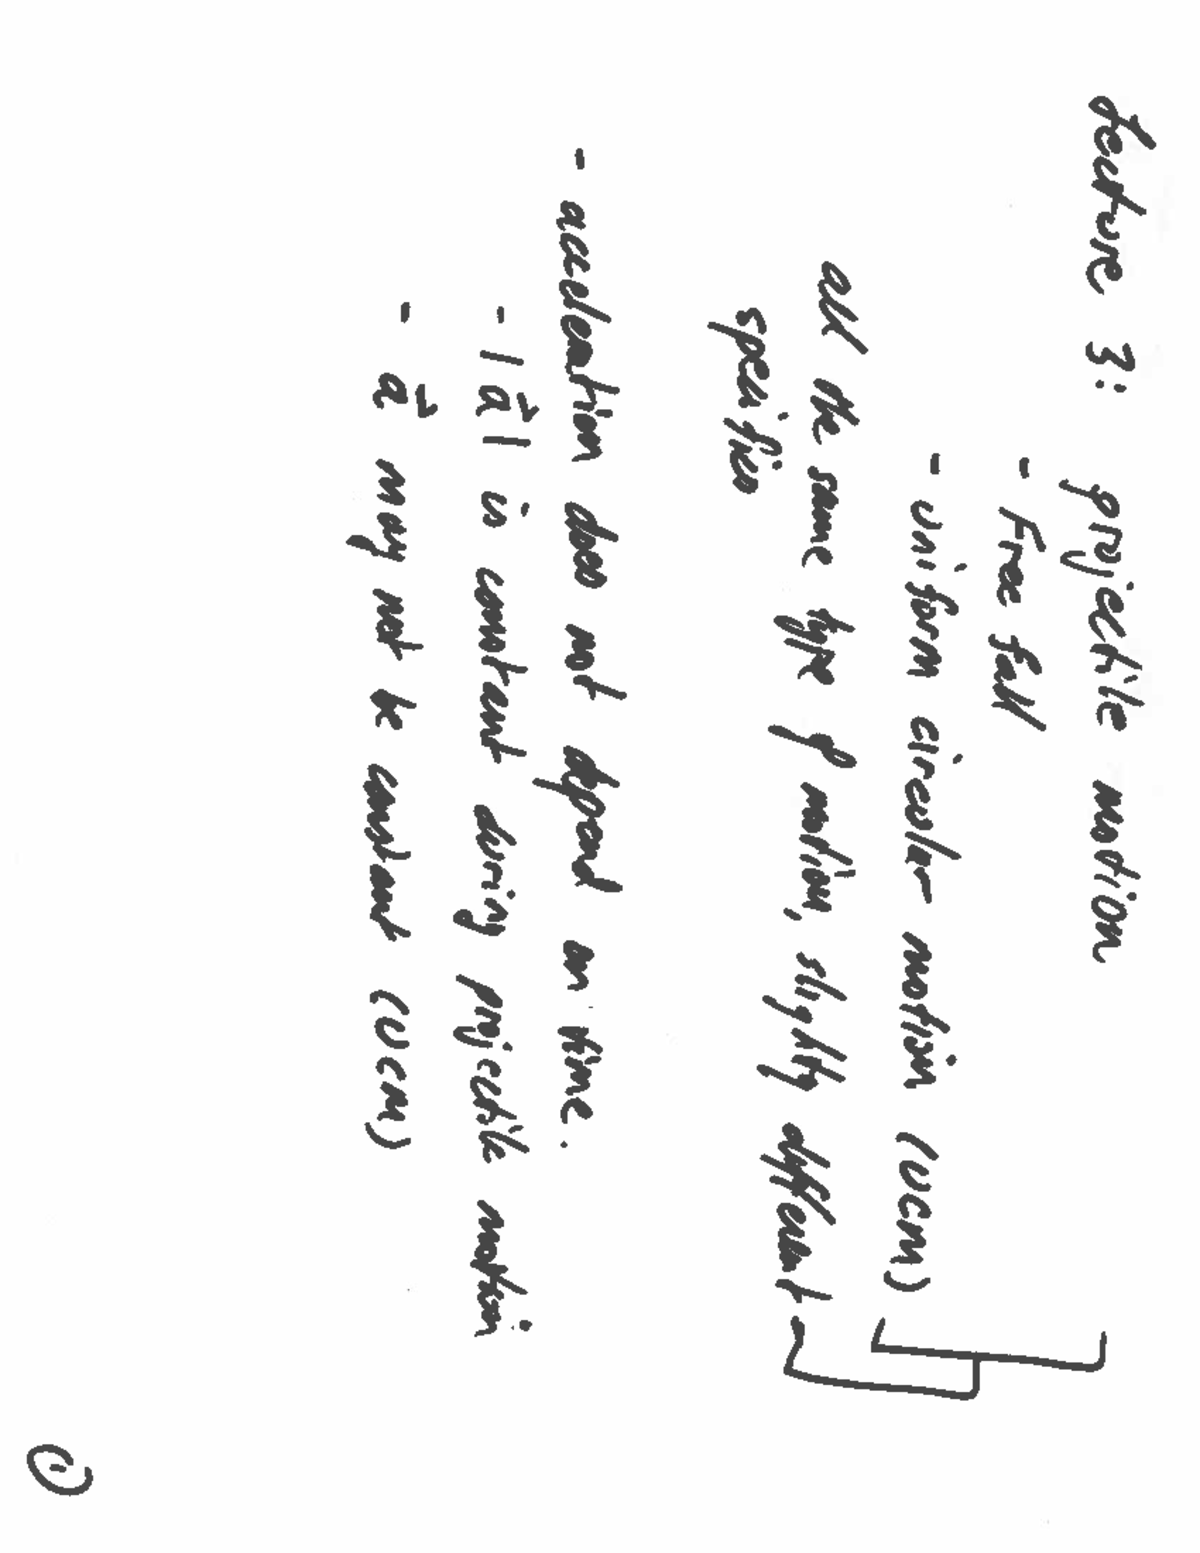 Lecture 3: projectile motion
- Free fall
- uniform circular motion (UCM)
all the same type of motion, slightly different
specifics
- acceleration does not depend on time.
- |a⃗| is constant during projectile motion
- a⃗ may not be constant (UCM)
1